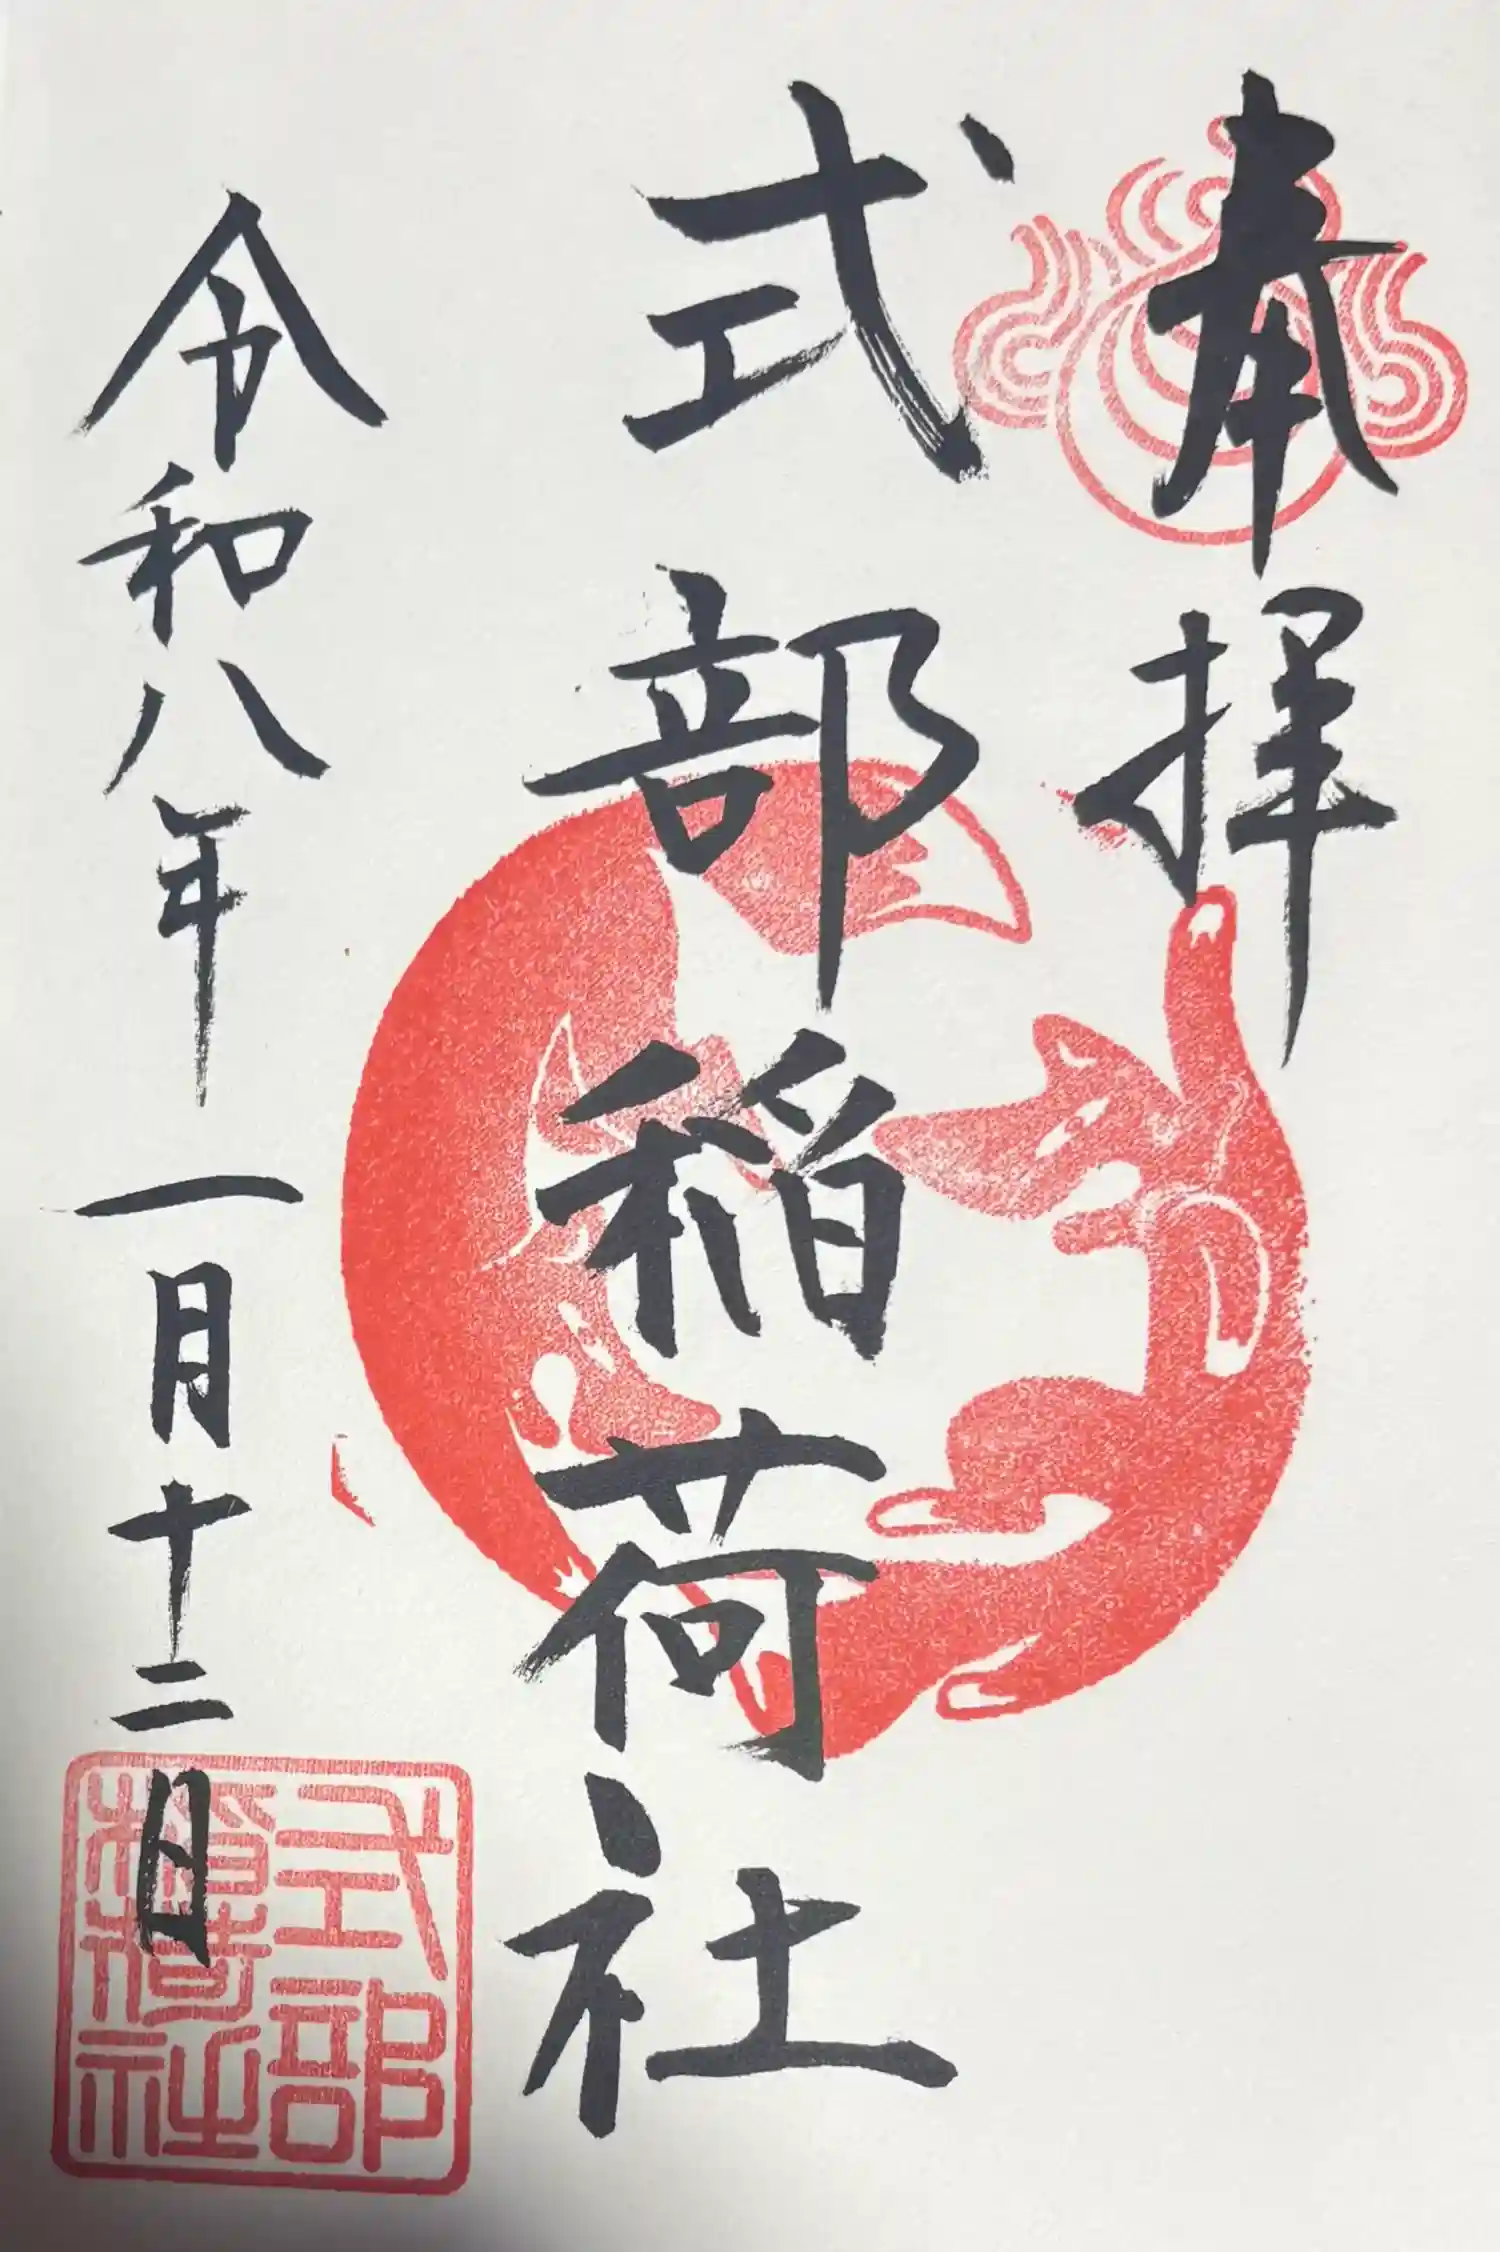 奉拝
式部稲荷社
令和八年一月十二日
式部
稲荷社